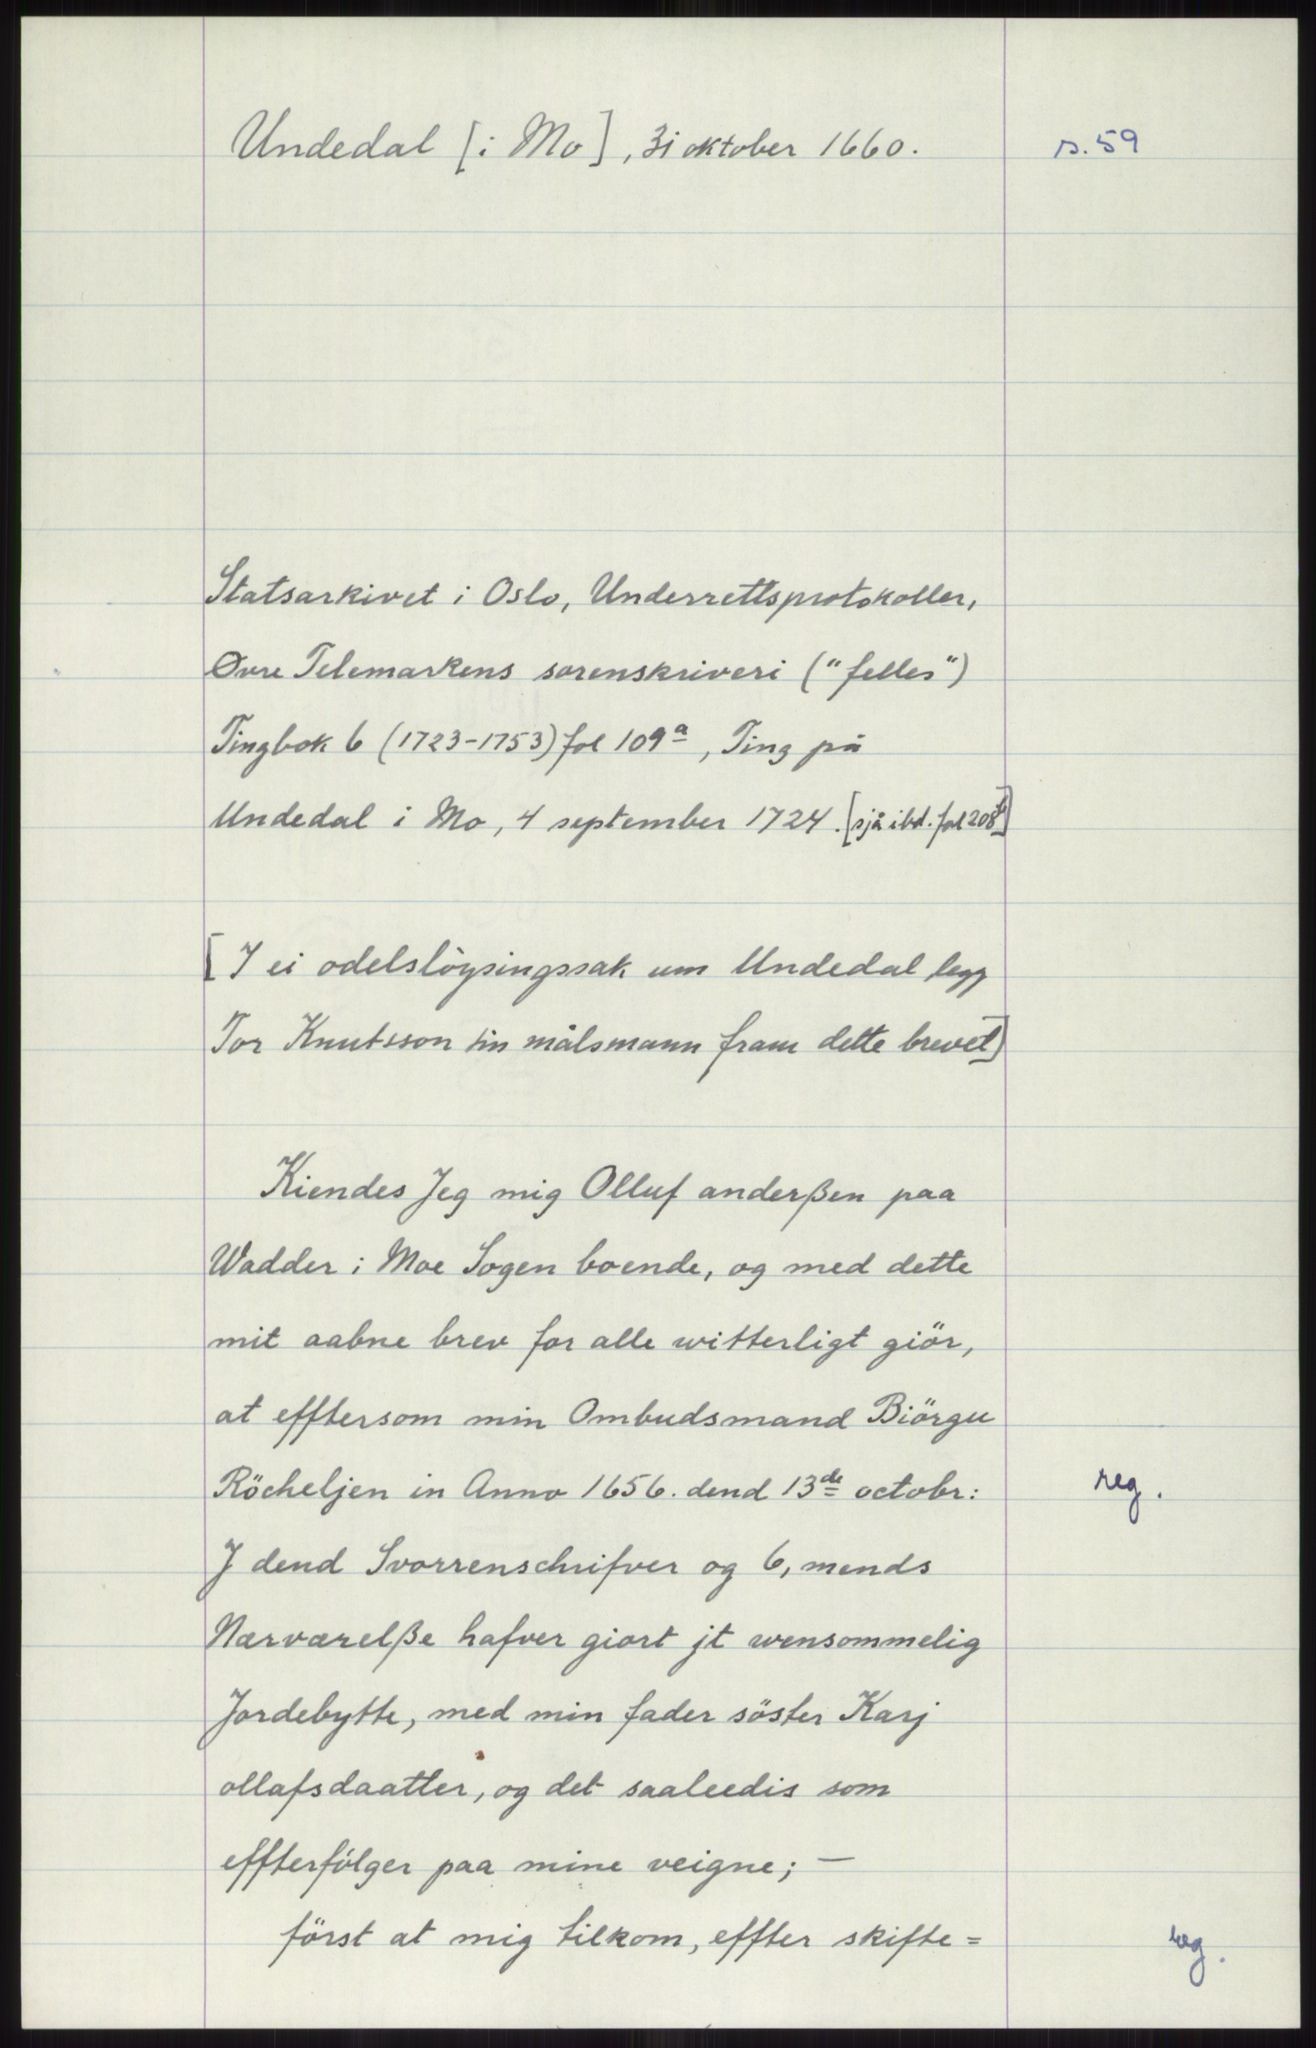 Undedal [i Mo], 31 oktober 1660.
s. 59
Statsarkivet i Oslo, Underrettsprotokoller,
Øvre Telemarkens sorenskriveri ("felles")
Tingbok 6 (1723-1753) fol 109a, Ting på
Undedal i Mo, 4 september 1724. [sjå ibd. fol 208b]
[I ei odelslöysingssak um Undedal legg
Tor Knutsson sin målsmann fram dette brevet]
Kiendes Jeg mig Olluf anderßen paa
Wadder i Moe Sogen boende, og med dette
mit aabne brev for alle witterligt giör,
at efftersom min Ombudsmand Biörgu
Röcheljen in Anno 1656. dend 13de octobr:
reg.
J dend Svorrenschrifver og 6, mends
Nærværelße hafver giort jt wensommelig
Jordebytte, med min fader söster Karj
ollafsdaatter, og det saaleedis som
effterfölger paa mine veigne; —
först at mig tilkom, effter skifte=
reg.